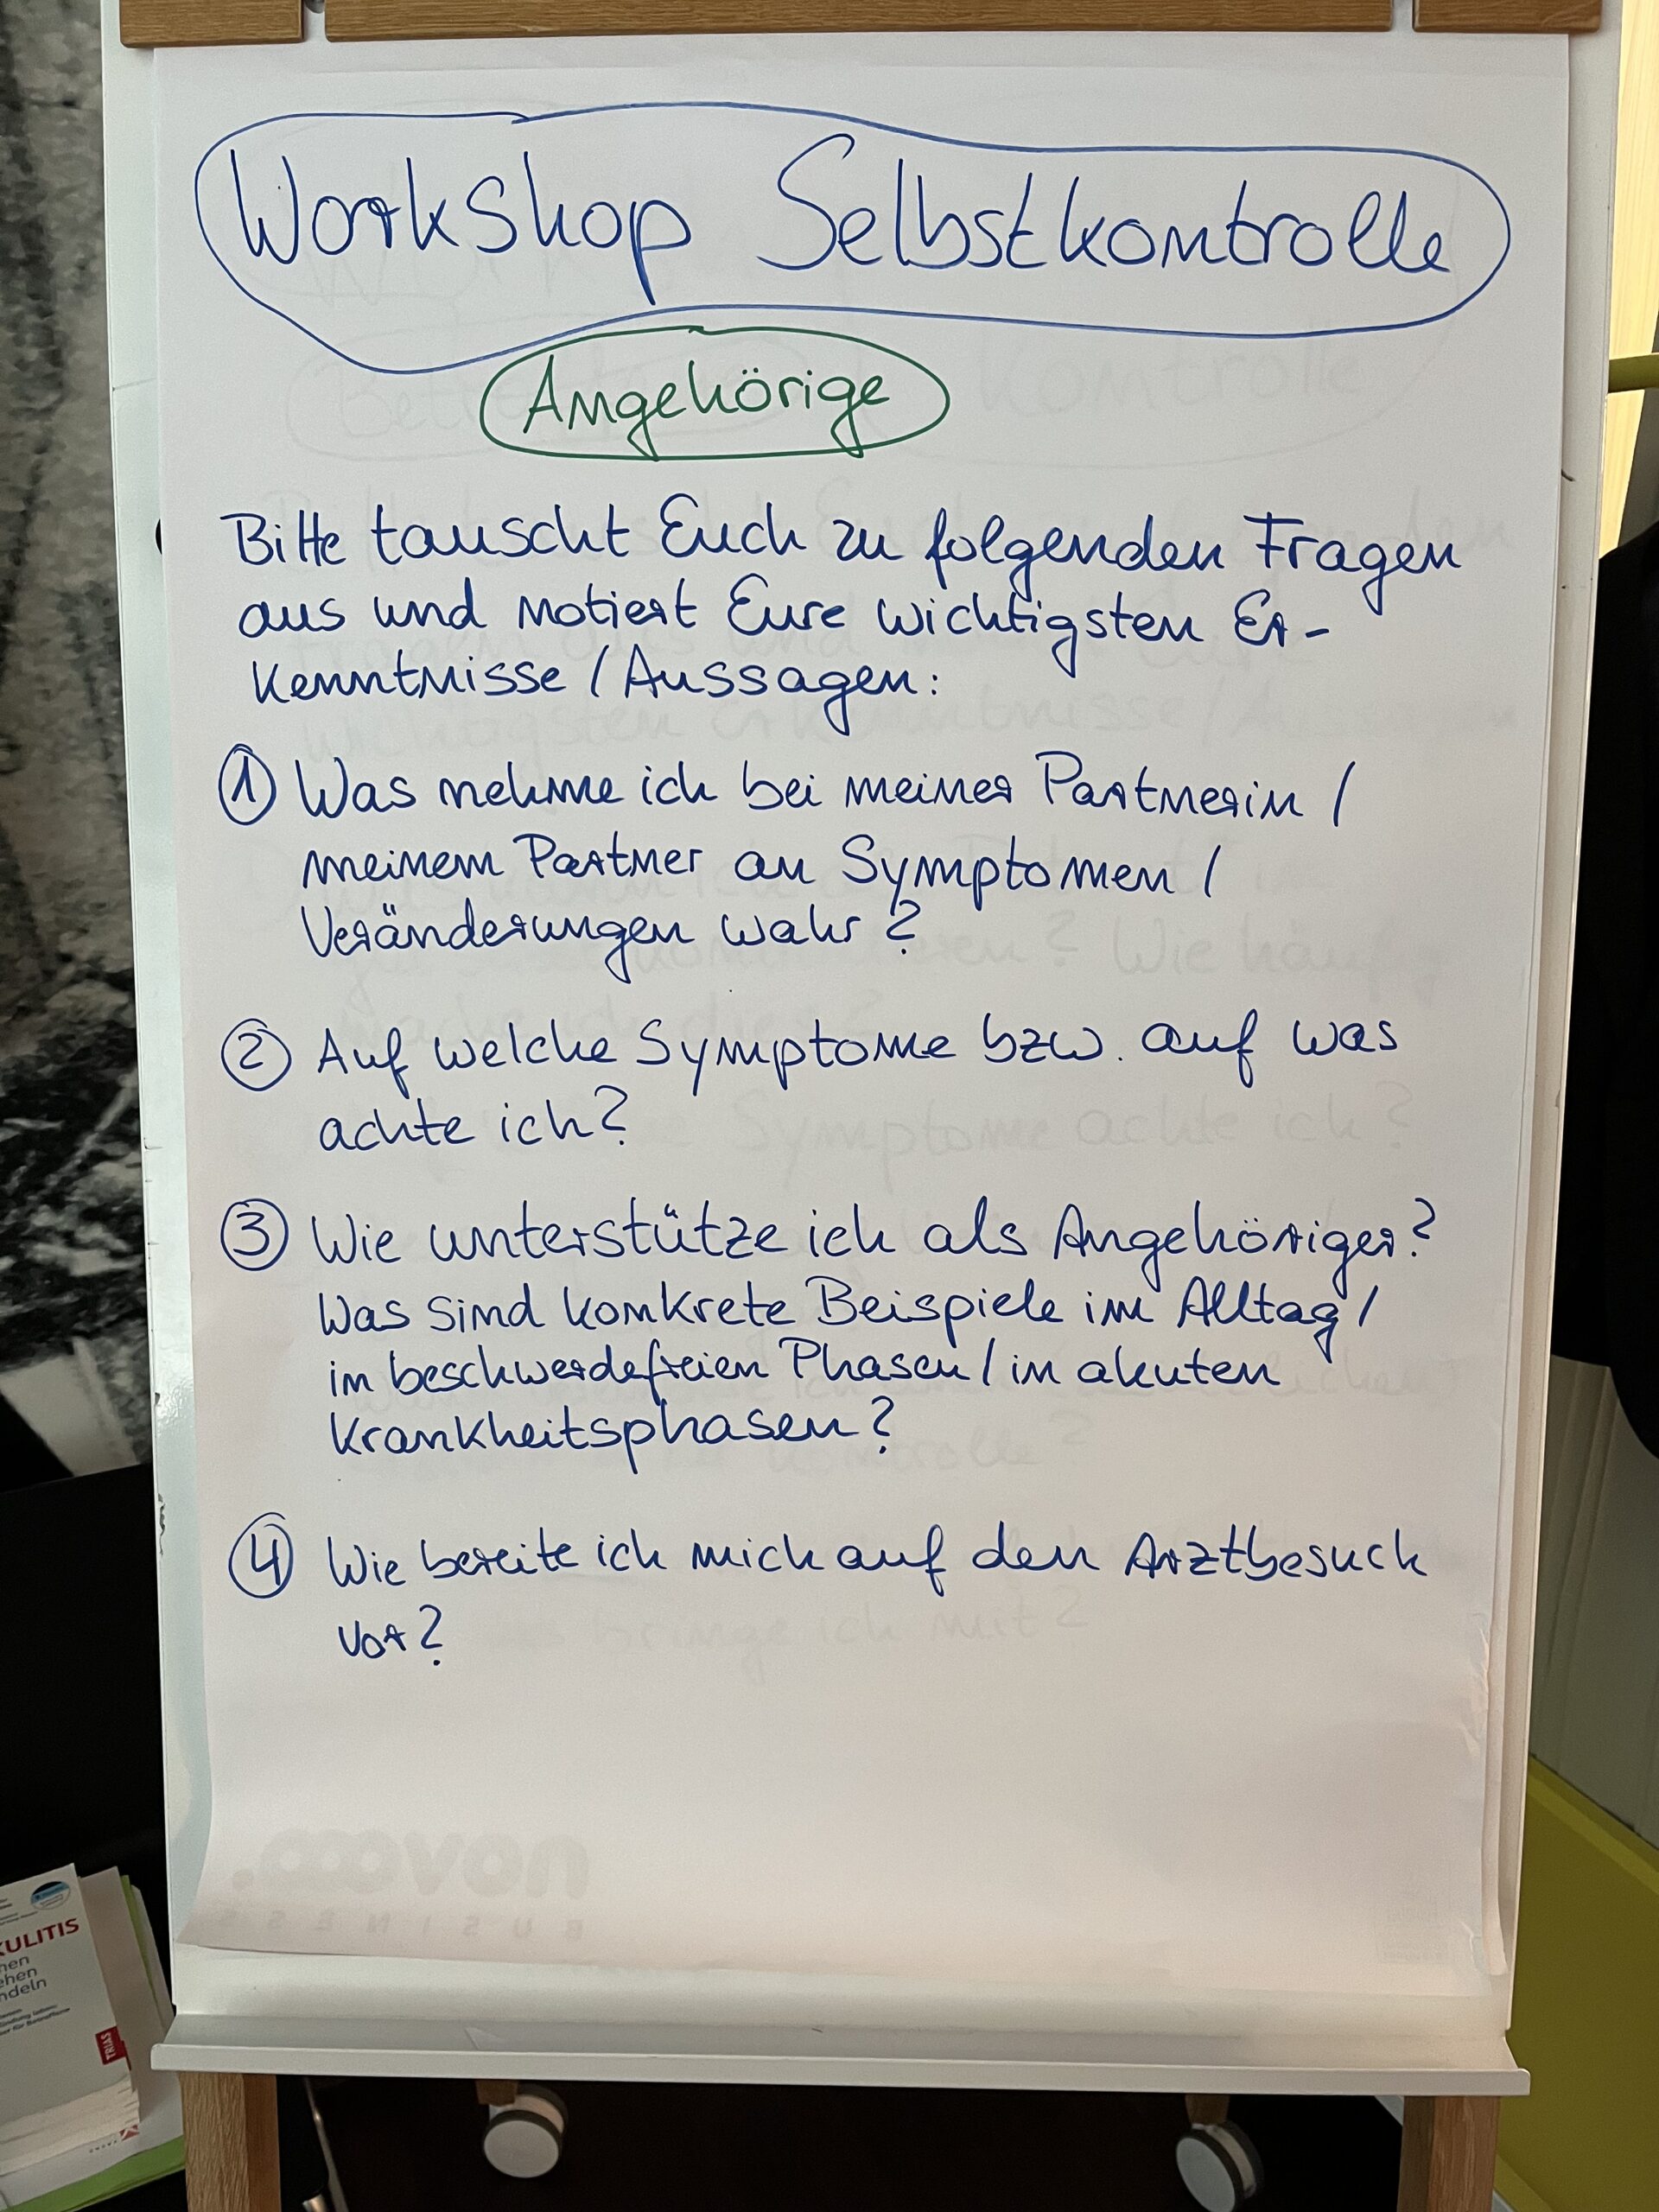 Workshop Selbstkontrolle
Angehörige
Bitte tauscht Euch zu folgenden Fragen
aus und notiert Eure wichtigsten Er-
kenntnisse / Aussagen:
① Was nehme ich bei meiner Partnerin /
meinem Partner an Symptomen /
Veränderungen wahr?
② Auf welche Symptome bzw. auf was
achte ich?
③ Wie unterstütze ich als Angehöriger?
Was sind konkrete Beispiele im Alltag /
in beschwerdefreien Phasen / in akuten
Krankheitsphasen?
④ Wie bereite ich mich auf den Arztbesuch
vor?
novooo.
BUSINESS
KULITIS
TRIAS